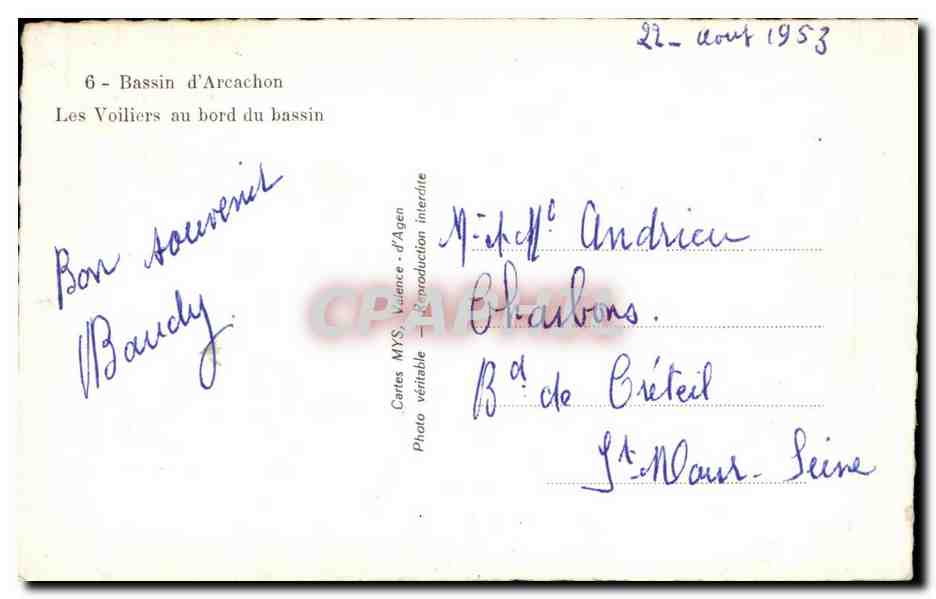 22 - Aout 1953
6 - Bassin d'Arcachon
Les Voiliers au bord du bassin
Bon souvenir
Baudy.
Cartes MYS, Valence - d'Agen
Photo véritable — Reproduction interdite
CPAPHIL
Mr et Me Andrieu
Charbons.
Bd de Créteil
St-Maur - Seine